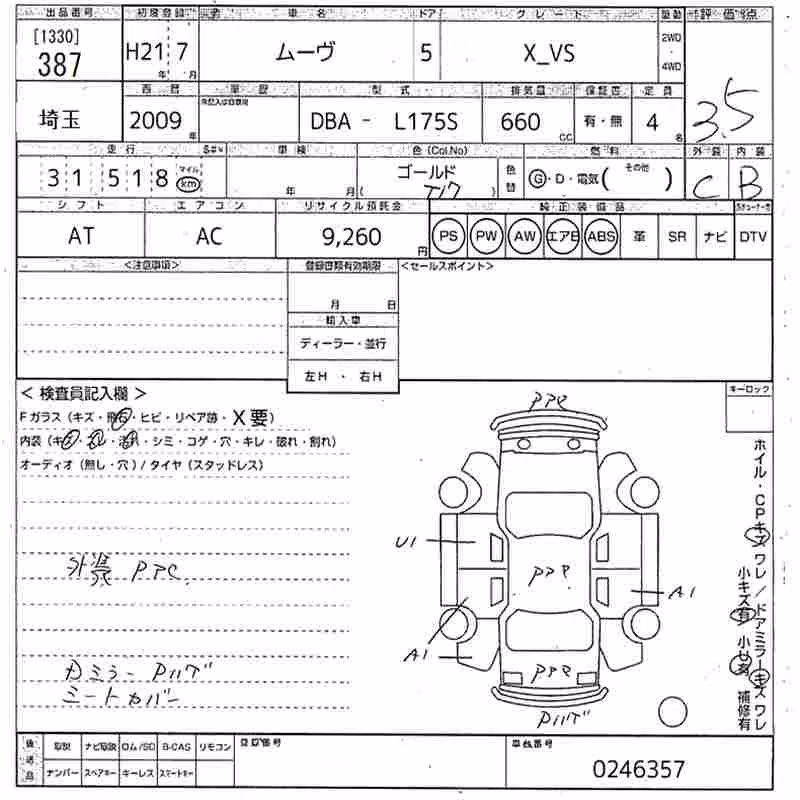 出品番号 初度登録 車名 ドア グレード 駆動 評価点
[1330]
387
H21 7 ムーヴ 5 X_VS 2WD
・
4WD
年 月
西暦 車歴 型式 排気量 保証書 定員
埼玉 2009 年 DBA - L175S 660 cc 有・無 4 名 3.5
走行 車検 色 (Col.No) 燃料 外装 内装
31518 マイル km 年 月 ゴールド 色替 G・D・電気( その他 ) C B
T17
シフト エアコン リサイクル預託金 純正装備品
AT AC 9,260 円 PS PW AW エアB ABS 革 SR ナビ DTV
<注意事項> 登録書類有効期限 <セールスポイント>
月 日
輸入車
ディーラー・並行
左H ・ 右H
< 検査員記入欄 > キーロック
Fガラス (キズ・飛石・ヒビ・リペア跡・X要)
内装 (キズ・汚れ・シミ・コゲ・穴・キレ・破れ・割れ)
オーディオ (無し・穴) / タイヤ (スタッドレス)
外装 PPC
シートカバー
U1
A1
A1
ホイル・CPキズワレ / ドアミラーキズワレ
小キズ有 小凹有 補修有
後送品 取説 ナビ取説 ロム/SD B-CAS リモコン 登録番号 車台番号
ナンバー スペアキー キーレス スマートキー 0246357